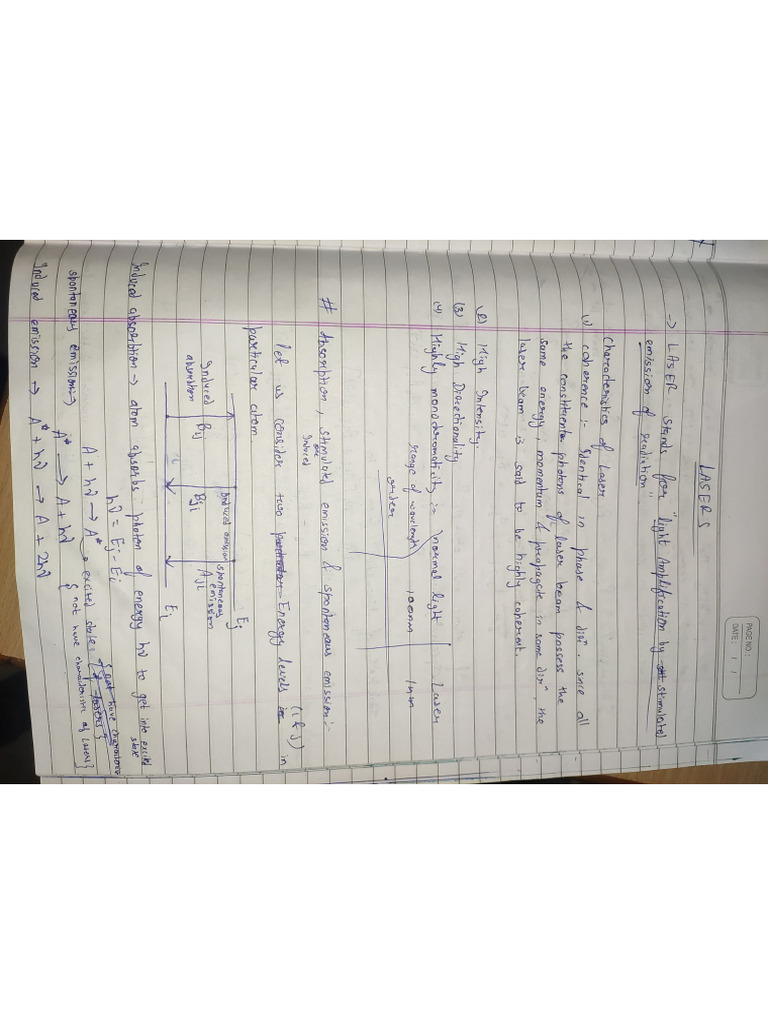 PAGE NO.:
DATE: / /
LASERS
→ LASER stands for "light Amplification by stimulated
emission of radiation"
Characteristics of Laser
(1) coherence :- Identical in phase & dirⁿ. since all
the constituent photons of laser beam possess the
same energy, momentum & propagate in same dirⁿ, the
laser beam is said to be highly coherent.
(2) High Intensity:-
(3) High Directionality
(4) Highly monochromaticity :- normal light Laser
range of wavelength
order 100nm 1nm
# Absorption, stimulated emission & spontaneous emission:-
or
Induced
Let us consider two Energy levels (i & j) in
particular atom
Ej
Induced absorption Bij
Induced emission Bji
spontaneous emission Aji
Ei
Induced absorption → atom absorbs photon of energy hν to get into excited
state
hν = Ej - Ei
{not have characteristics
of lasers}
A + hν → A* → excited state
spontaneous emission → A* → A + hν {not have characteristics of lasers}
Induced emission → A* + hν → A + 2hν